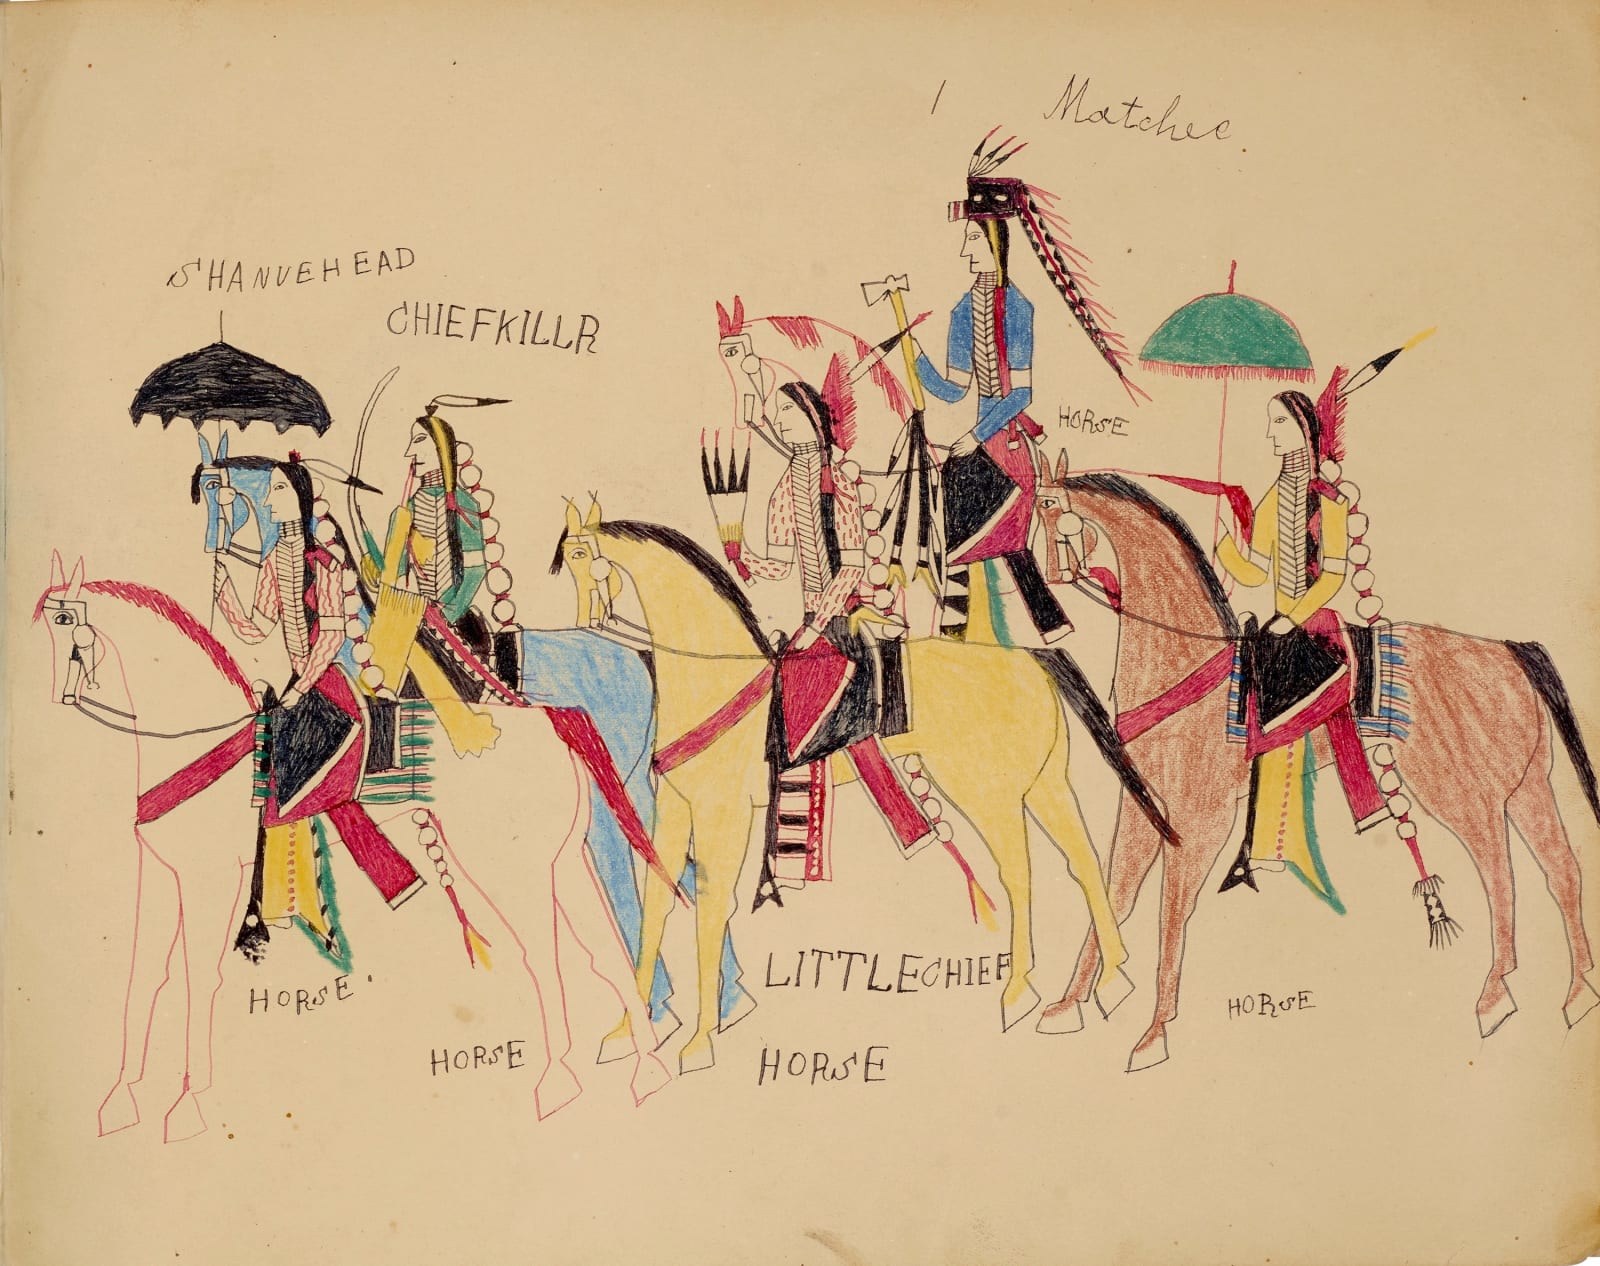 1 Matchee
SHANUEHEAD
CHIEFKILLR
HORSE
LITTLECHIEF
HORSE
HORSE
HORSE
HORSE